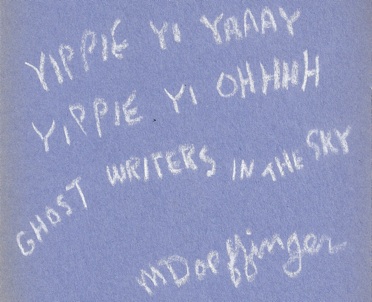 YIPPIE YI YAAAY
YIPPIE YI OHHHH
GHOST WRITERS IN THE SKY
MDorffinger